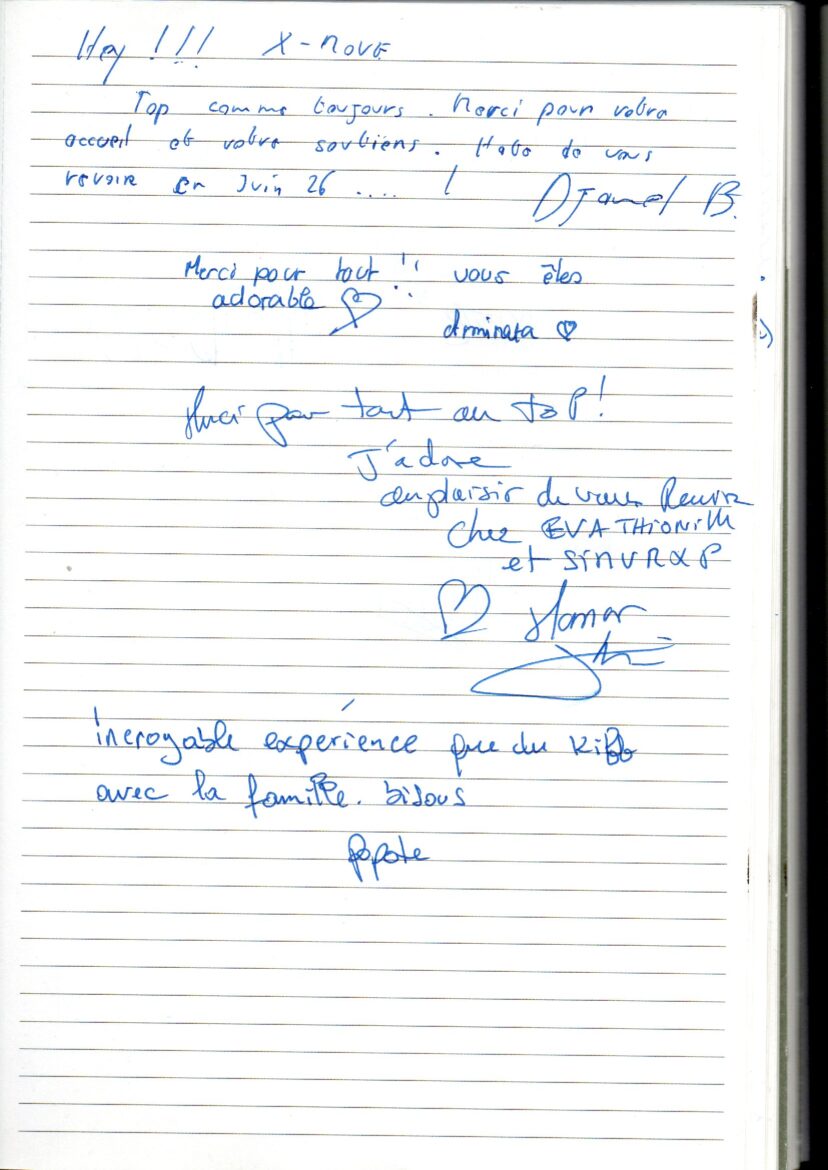 Hey !!! X-MOVE
Top comme toujours. Merci pour votre
accueil et votre soutiens. Hate de vous
revoir en Juin 26 .... !
Djamel B.
Merci pour tout !! vous êtes
adorable
Aminata
Merci pour tout au ToP!
J'adore
au plaisir de vous Revoir
chez EVA THIONVILLE
et
incroyable expérience que du Kiff
avec la famille. bisous
popote